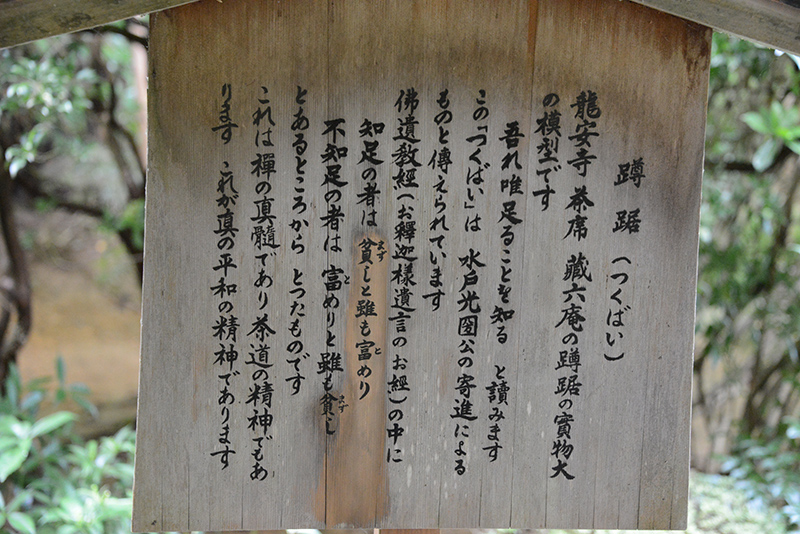 蹲踞(つくばい)
龍安寺 茶席 藏六庵の蹲踞の實物大
の模型です
吾れ唯足ることを知る と讀みます
この「つくばい」は 水戸光圀公の寄進による
ものと傳えられています
佛遺教經(お釋迦様遺言のお經)の中に
知足の者は 貧しと雖も富めり
まず と
不知足の者は 富めりと雖も貧し
と まず
とあるところから とつたものです
これは禪の真髓であり茶道の精神でもあ
ります これが真の平和の精神であります